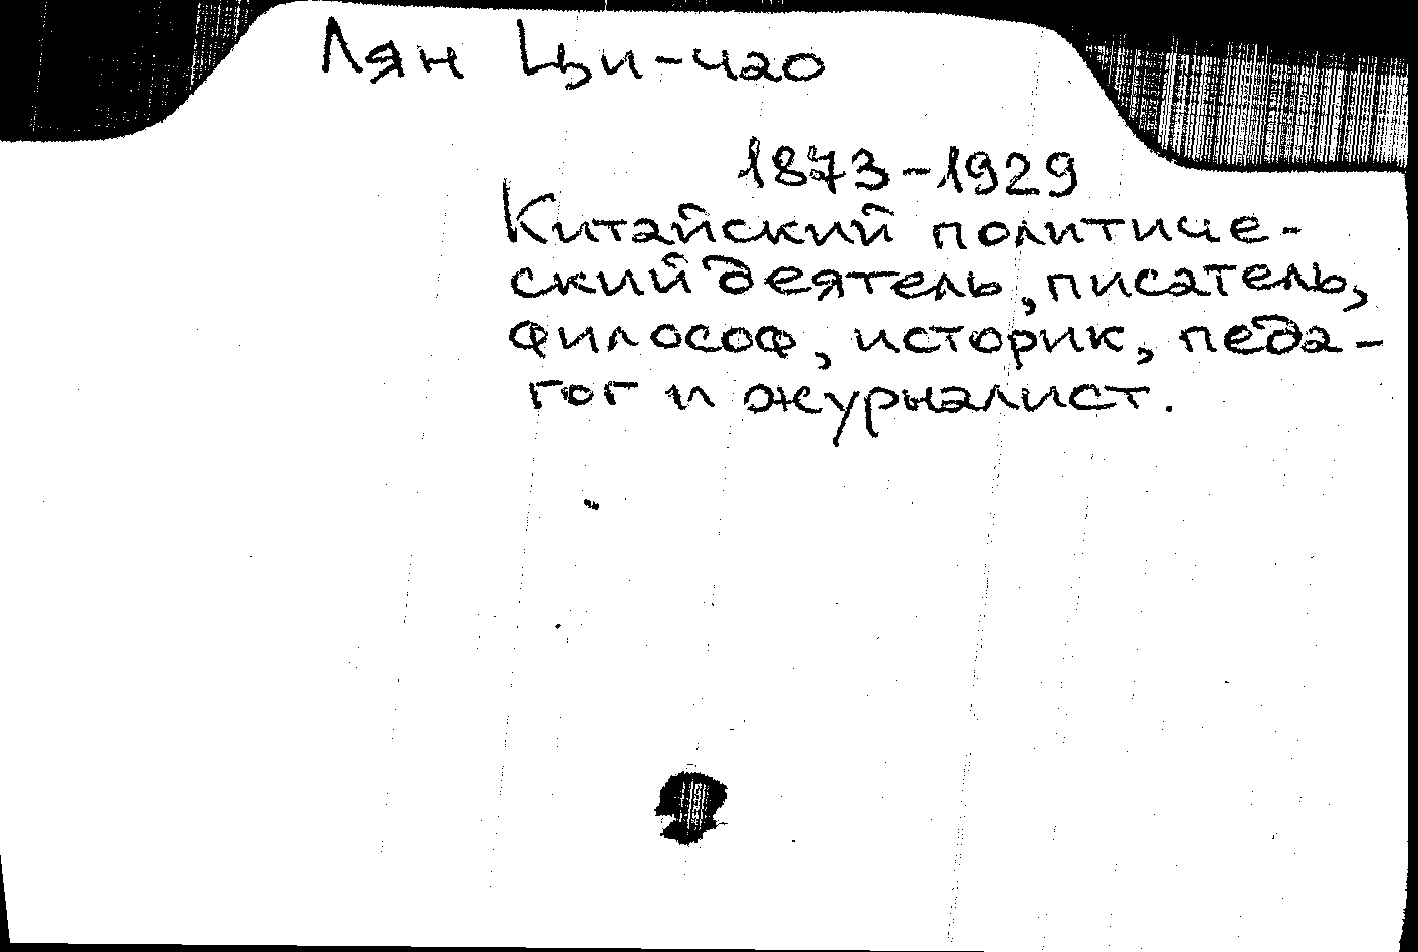 Лян Ци-чао
1873-1929
Китайский политиче-
ский деятель, писатель,
философ, историк, педа-
гог и журналист.